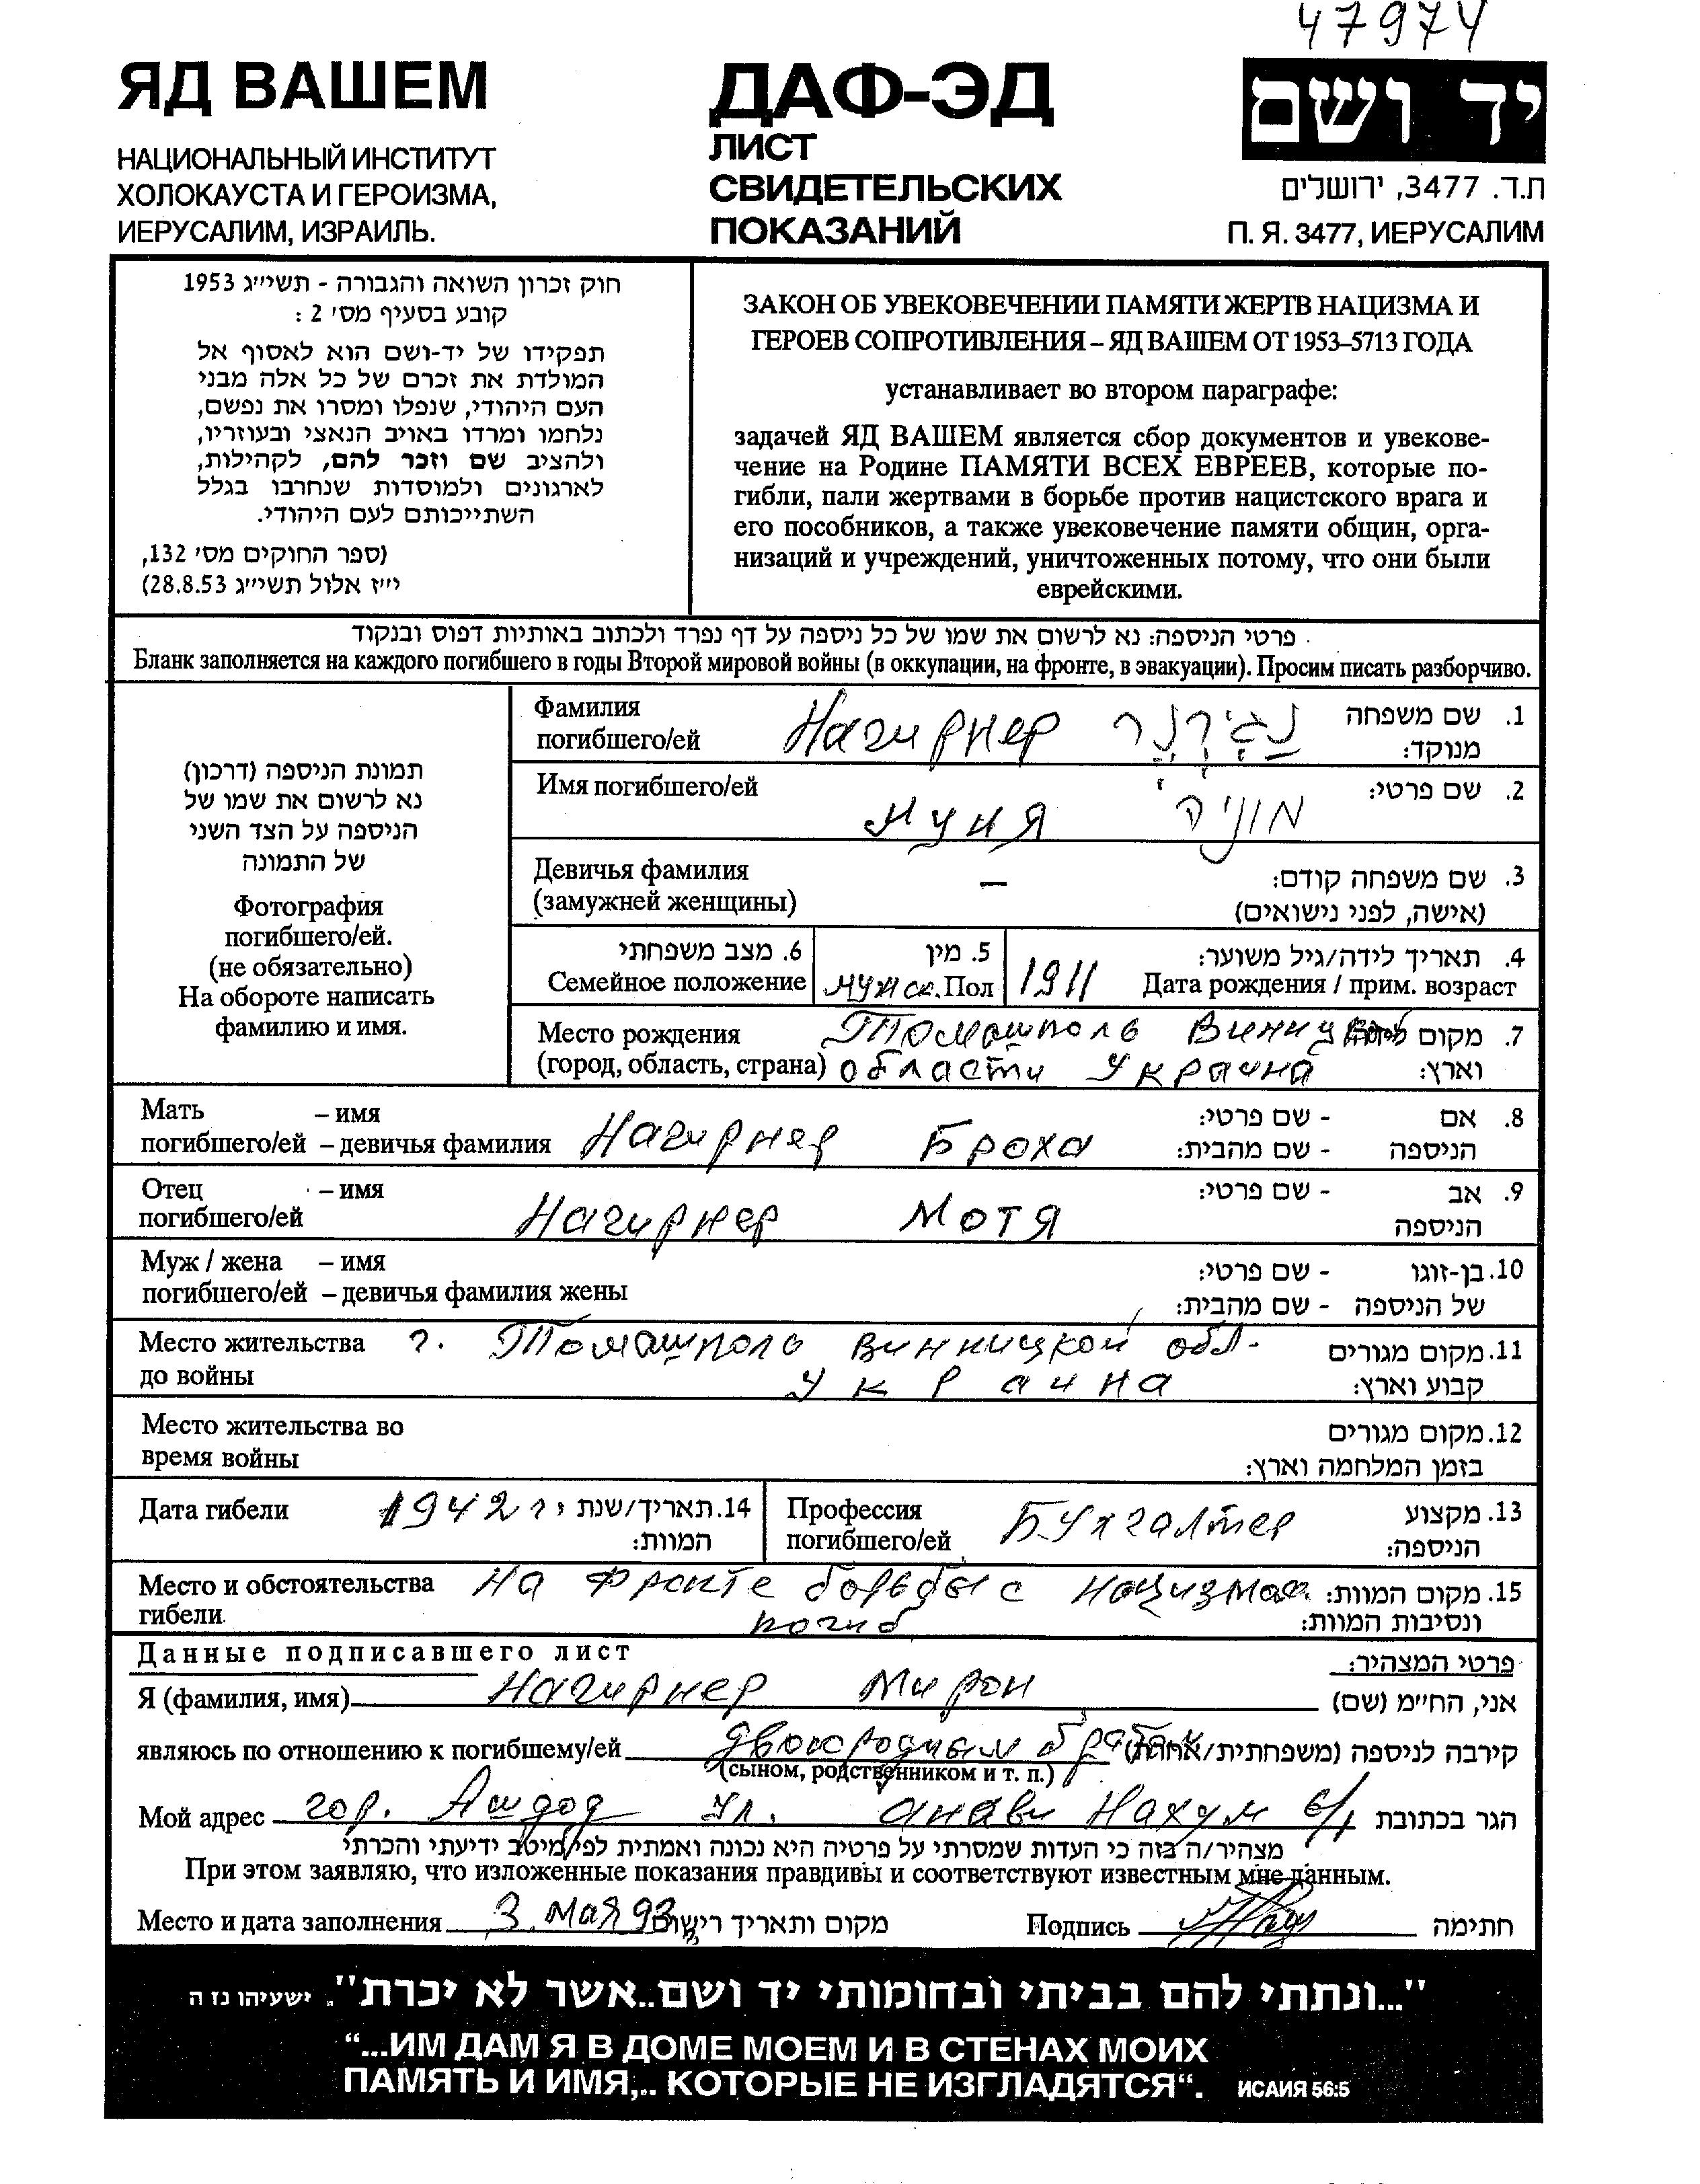 47974
ЯД ВАШЕМ
НАЦИОНАЛЬНЫЙ ИНСТИТУТ
ХОЛОКАУСТА И ГЕРОИЗМА,
ИЕРУСАЛИМ, ИЗРАИЛЬ.
ДАФ-ЭД
ЛИСТ
СВИДЕТЕЛЬСКИХ
ПОКАЗАНИЙ
יד ושם
ת.ד. 3477, ירושלים
П. Я. 3477, ИЕРУСАЛИМ
חוק זכרון השואה והגבורה - תשי״ג 1953
קובע בסעיף מס׳ 2 :
תפקידו של יד-ושם הוא לאסוף אל
המולדת את זכרם של כל אלה מבני
העם היהודי, שנפלו ומסרו את נפשם,
נלחמו ומרדו באויב הנאצי ובעוזריו,
ולהציב שם וזכר להם, לקהילות,
לארגונים ולמוסדות שנחרבו בגלל
השתייכותם לעם היהודי.
(ספר החוקים מס׳ 132,
י״ז אלול תשי״ג 28.8.53)
ЗАКОН ОБ УВЕКОВЕЧЕНИИ ПАМЯТИ ЖЕРТВ НАЦИЗМА И
ГЕРОЕВ СОПРОТИВЛЕНИЯ – ЯД ВАШЕМ ОТ 1953–5713 ГОДА
устанавливает во втором параграфе:
задачей ЯД ВАШЕМ является сбор документов и увекове-
чение на Родине ПАМЯТИ ВСЕХ ЕВРЕЕВ, которые по-
гибли, пали жертвами в борьбе против нацистского врага и
его пособников, а также увековечение памяти общин, орга-
низаций и учреждений, уничтоженных потому, что они были
еврейскими.
פרטי הניספה: נא לרשום את שמו של כל ניספה על דף נפרד ולכתוב באותיות דפוס ובנקוד
Бланк заполняется на каждого погибшего в годы Второй мировой войны (в оккупации, на фронте, в эвакуации). Просим писать разборчиво.
תמונת הניספה (דרכון)
נא לרשום את שמו של
הניספה על הצד השני
של התמונה
Фотография
погибшего/ей.
(не обязательно)
На обороте написать
фамилию и имя.
Фамилия Нагирнер נַגִירְנֶר 1. שם משפחה
погибшего/ей מנוקד:
Имя погибшего/ей Муня מוניה 2. שם פרטי:
Девичья фамилия – 3. שם משפחה קודם:
(замужней женщины) (אישה, לפני נישואים)
6. מצב משפחתי 5. מין 4. תאריך לידה/גיל משוער:
Семейное положение мужск. Пол 1911 Дата рождения / прим. возраст
Место рождения Томашполь Винницкой 7. מקום
(город, область, страна) области Украина וארץ:
Мать – имя 8. אם - שם פרטי:
погибшего/ей – девичья фамилия Нагирнер Броха הניספה - שם מהבית:
Отец – имя 9. אב - שם פרטי:
погибшего/ей Нагирнер Мотя הניספה
Муж / жена – имя 10. בן-זוגו - שם פרטי:
погибшего/ей – девичья фамилия жены של הניספה - שם מהבית:
Место жительства г. Томашполь Винницкой обл. 11. מקום מגורים
до войны Украина קבוע וארץ:
Место жительства во 12. מקום מגורים
время войны בזמן המלחמה וארץ:
Дата гибели 1942 г. 14. תאריך/שנת המוות:
Профессия Бухгалтер 13. מקצוע
погибшего/ей הניספה:
Место и обстоятельства На фронте борьбы с нацизмом 15. מקום המוות:
гибели погиб ונסיבות המוות:
Данные подписавшего лист פרטי המצהיר:
Я (фамилия, имя) Нагирнер Мирон אני, הח״מ (שם)
являюсь по отношению к погибшему/ей двоюродным братом קירבה לניספה (משפחתית/אחרת)
(сыном, родственником и т. п.)
Мой адрес гор. Ашдод ул. Анави Нахум 6/1 הגר בכתובת
מצהיר/ה בזה כי העדות שמסרתי על פרטיה היא נכונה ואמתית לפי מיטב ידיעתי והכרתי
При этом заявляю, что изложенные показания правдивы и соответствуют известным мне данным.
Место и дата заполнения 3. Мая 93 מקום ותאריך רישום Подпись חתימה
"...ונתתי להם בביתי ובחומותי יד ושם..אשר לא יכרת". ישעיהו נז ה
“...ИМ ДАМ Я В ДОМЕ МОЕМ И В СТЕНАХ МОИХ
ПАМЯТЬ И ИМЯ,.. КОТОРЫЕ НЕ ИЗГЛАДЯТСЯ“. ИСАИЯ 56:5